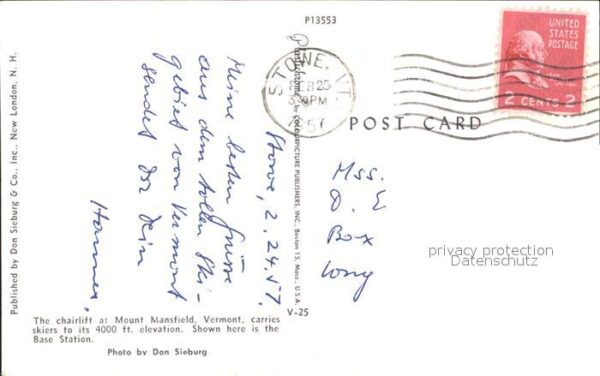 P13553
UNITED
STATES
POSTAGE
2 CENTS 2
STOWE, VT.
FEB 25
PM
1957
POST CARD
Stowe, 2.24.57.
Meine besten Grüsse
aus dem tollen Ski-
gebiet von Vermont
sendet Dir Dein
Hannes,
Box
privacy protection
Datenschutz
Published by Don Sieburg & Co., Inc., New London, N. H.
Plastichrome by COLOURPICTURE PUBLISHERS, INC. Boston 15, Mass., U.S.A.
V-25
The chairlift at Mount Mansfield, Vermont, carries
skiers to its 4000 ft. elevation. Shown here is the
Base Station.
Photo by Don Sieburg